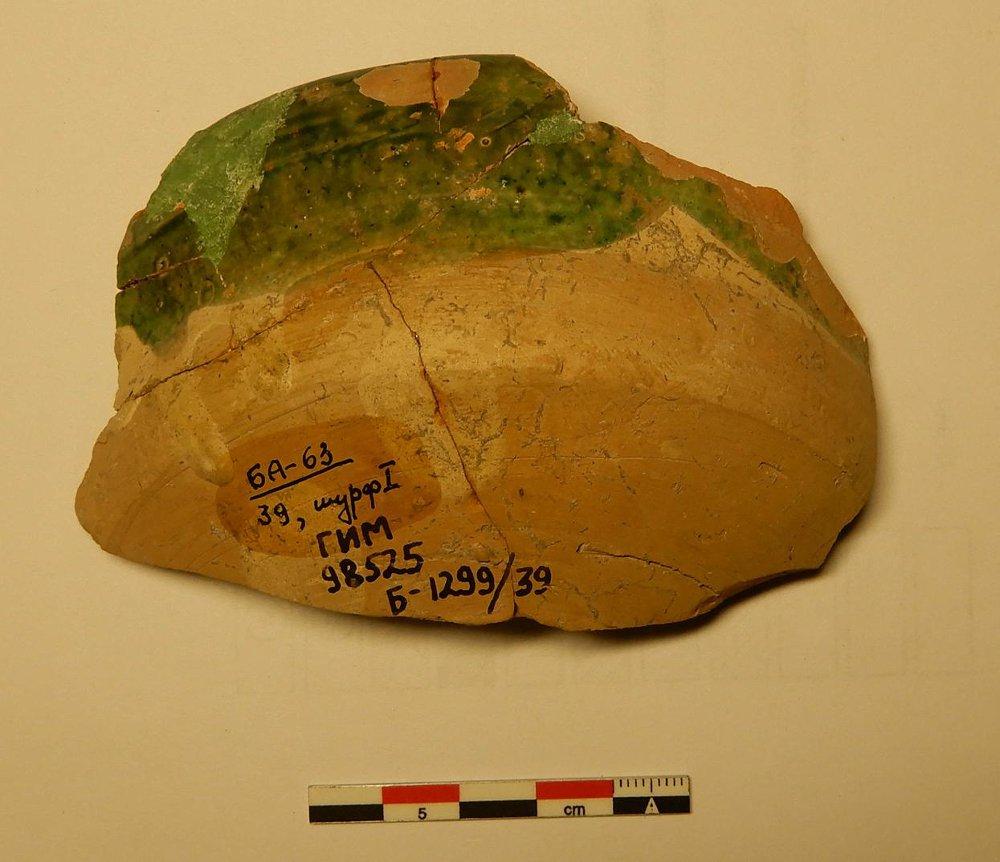 БА-63
39, шурф I
ГИМ
98525
Б-1299/39
5 cm